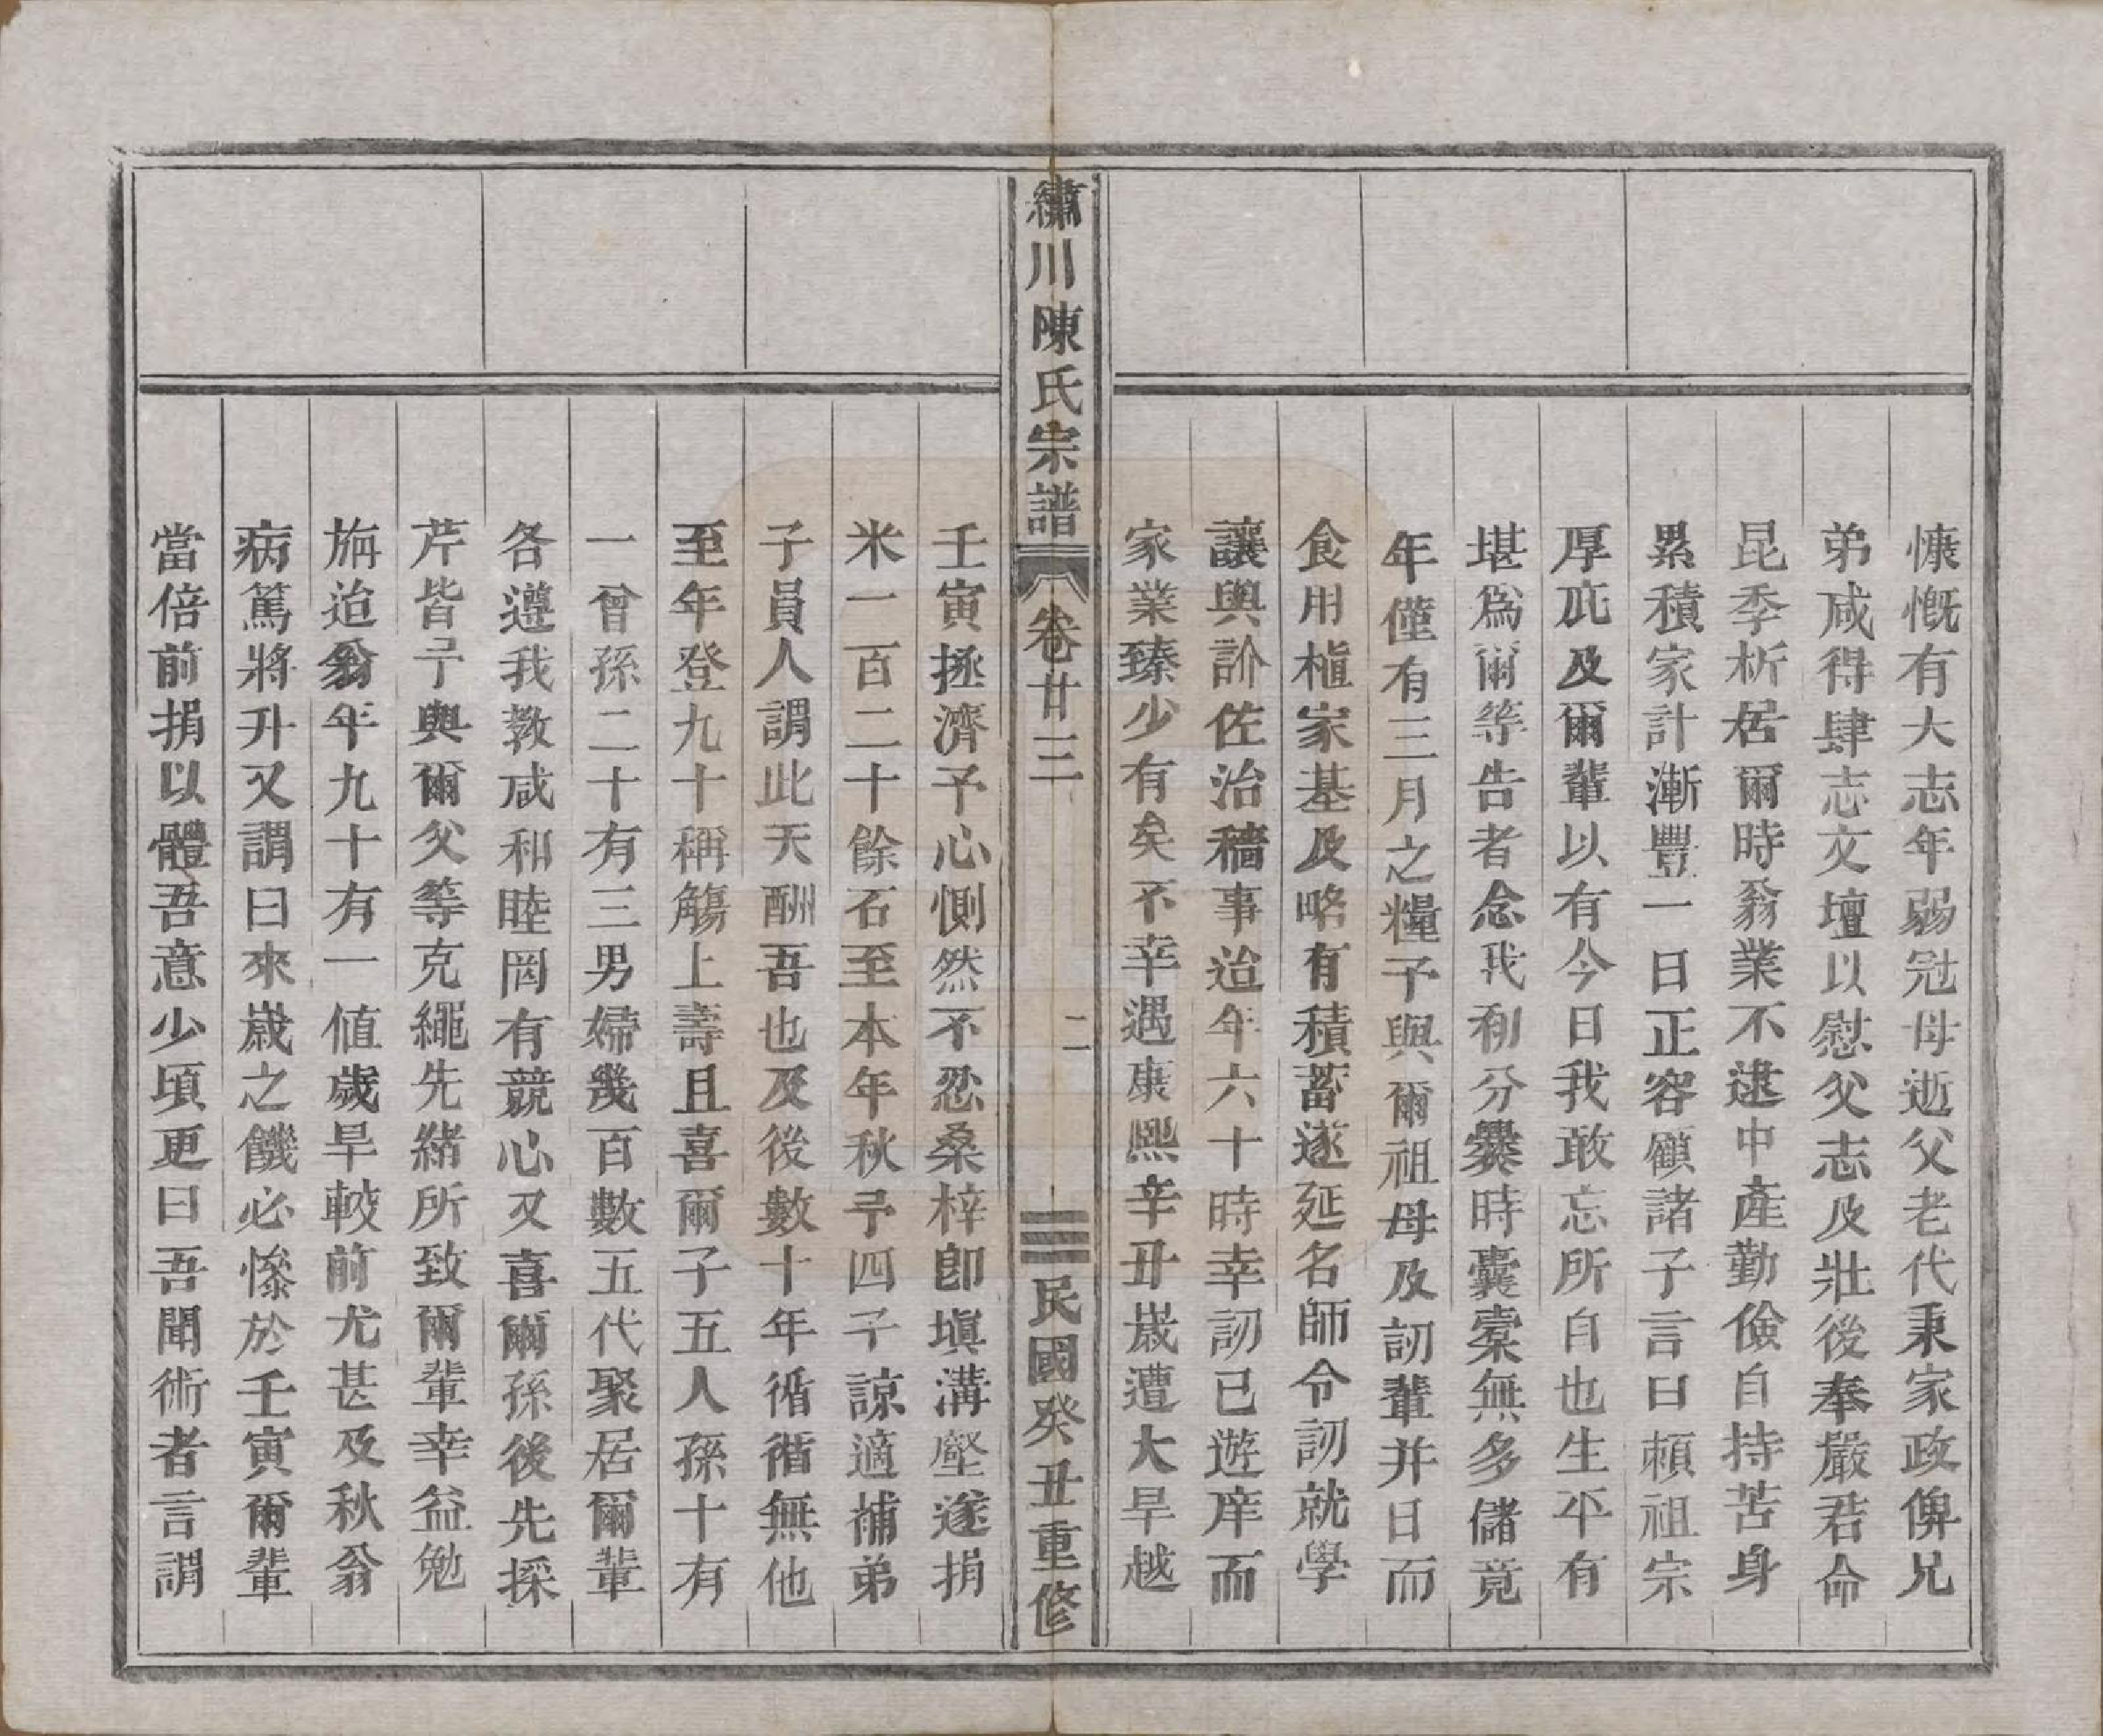 慷慨有大志年弱冠母逝父老代秉家政俾兄
弟咸得肆志文壇以慰父志及壯後奉嚴君命
昆季析居爾時翁業不逮中產勤儉自持苦身
累積家計漸豐一日正容顧諸子言曰頼祖宗
厚庇及爾輩以有今日我敢忘所自也生平有
堪爲爾等告者念我初分爨時囊橐無多儲竟
年僅有三月之糧予與爾祖母及訒輩并日而
食用植家基及略有積蓄遂延名師令訒就學
讓與訡佐治穡事迨年六十時幸訒已遊庠而
家業臻少有矣不幸遇康熙辛丑嵗遭大旱越
繡川陳氏宗譜
卷廿三
二
民國癸丑重修
壬寅拯濟予心惻然不忍桑梓卽塡溝壑遂捐
米一百二十餘石至本年秋予四子諒適補弟
子員人謂此天酬吾也及後數十年循循無他
至年登九十稱觴上壽且喜爾子五人孫十有
一曾孫二十有三男婦幾百數五代聚居爾輩
各遵我教咸和睦罔有競心又喜爾孫後先採
芹皆予與爾父等克繩先緒所致爾輩幸益勉
旃迨翁年九十有一值歲旱較前尤甚及秋翁
病篤將升又謂曰來嵗之饑必慘於壬寅爾輩
當倍前捐以體吾意少頃更曰吾聞術者言謂